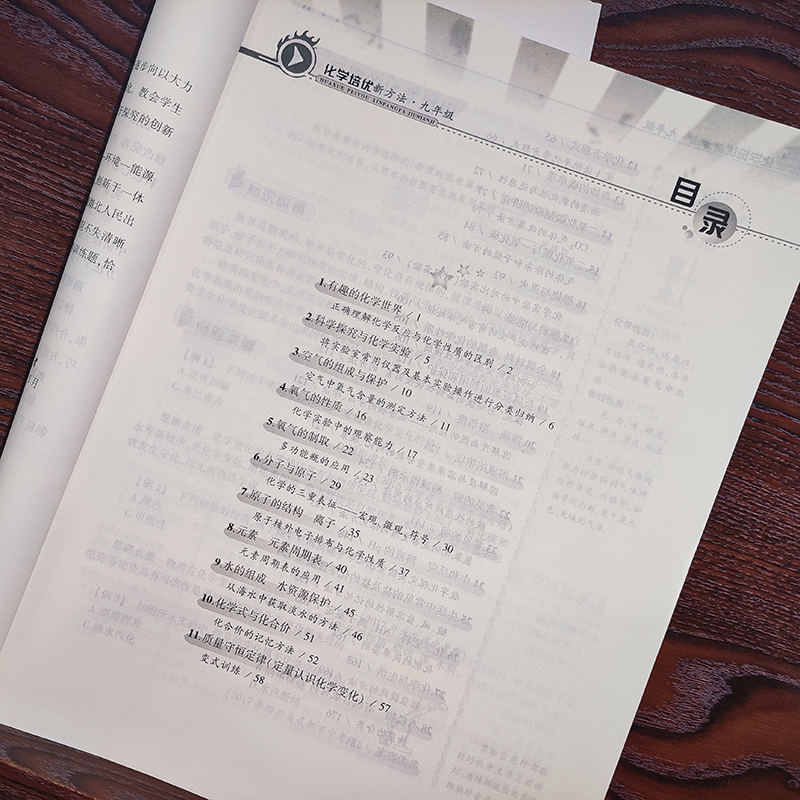 步向以大力
教会学生
探究的创新
环境—能源
创新于一体
北人民出
不失清晰
练题，恰
化学培优新方法·九年级
HUAXUE PEIYOU XINFANGFA JIUNIANJI
目录
1.有趣的化学世界 / 1
正确理解化学反应与化学性质的区别 / 2
2.科学探究与化学实验 / 5
将实验室常用仪器及基本实验操作进行分类归纳 / 6
3.空气的组成与保护 / 10
空气中氧气含量的测定方法 / 11
4.氧气的性质 / 16
化学实验中的观察能力 / 17
5.氧气的制取 / 22
多功能瓶的应用 / 23
6.分子与原子 / 29
化学的三重表征——宏观、微观、符号 / 30
7.原子的结构 离子 / 35
原子核外电子排布与化学性质 / 37
8.元素 元素周期表 / 40
元素周期表的应用 / 41
9.水的组成 水资源保护 / 45
从海水中获取淡水的方法 / 46
10.化学式与化合价 / 51
化合价的记忆方法 / 52
11.质量守恒定律(定量认识化学变化) / 57
变式训练 / 58